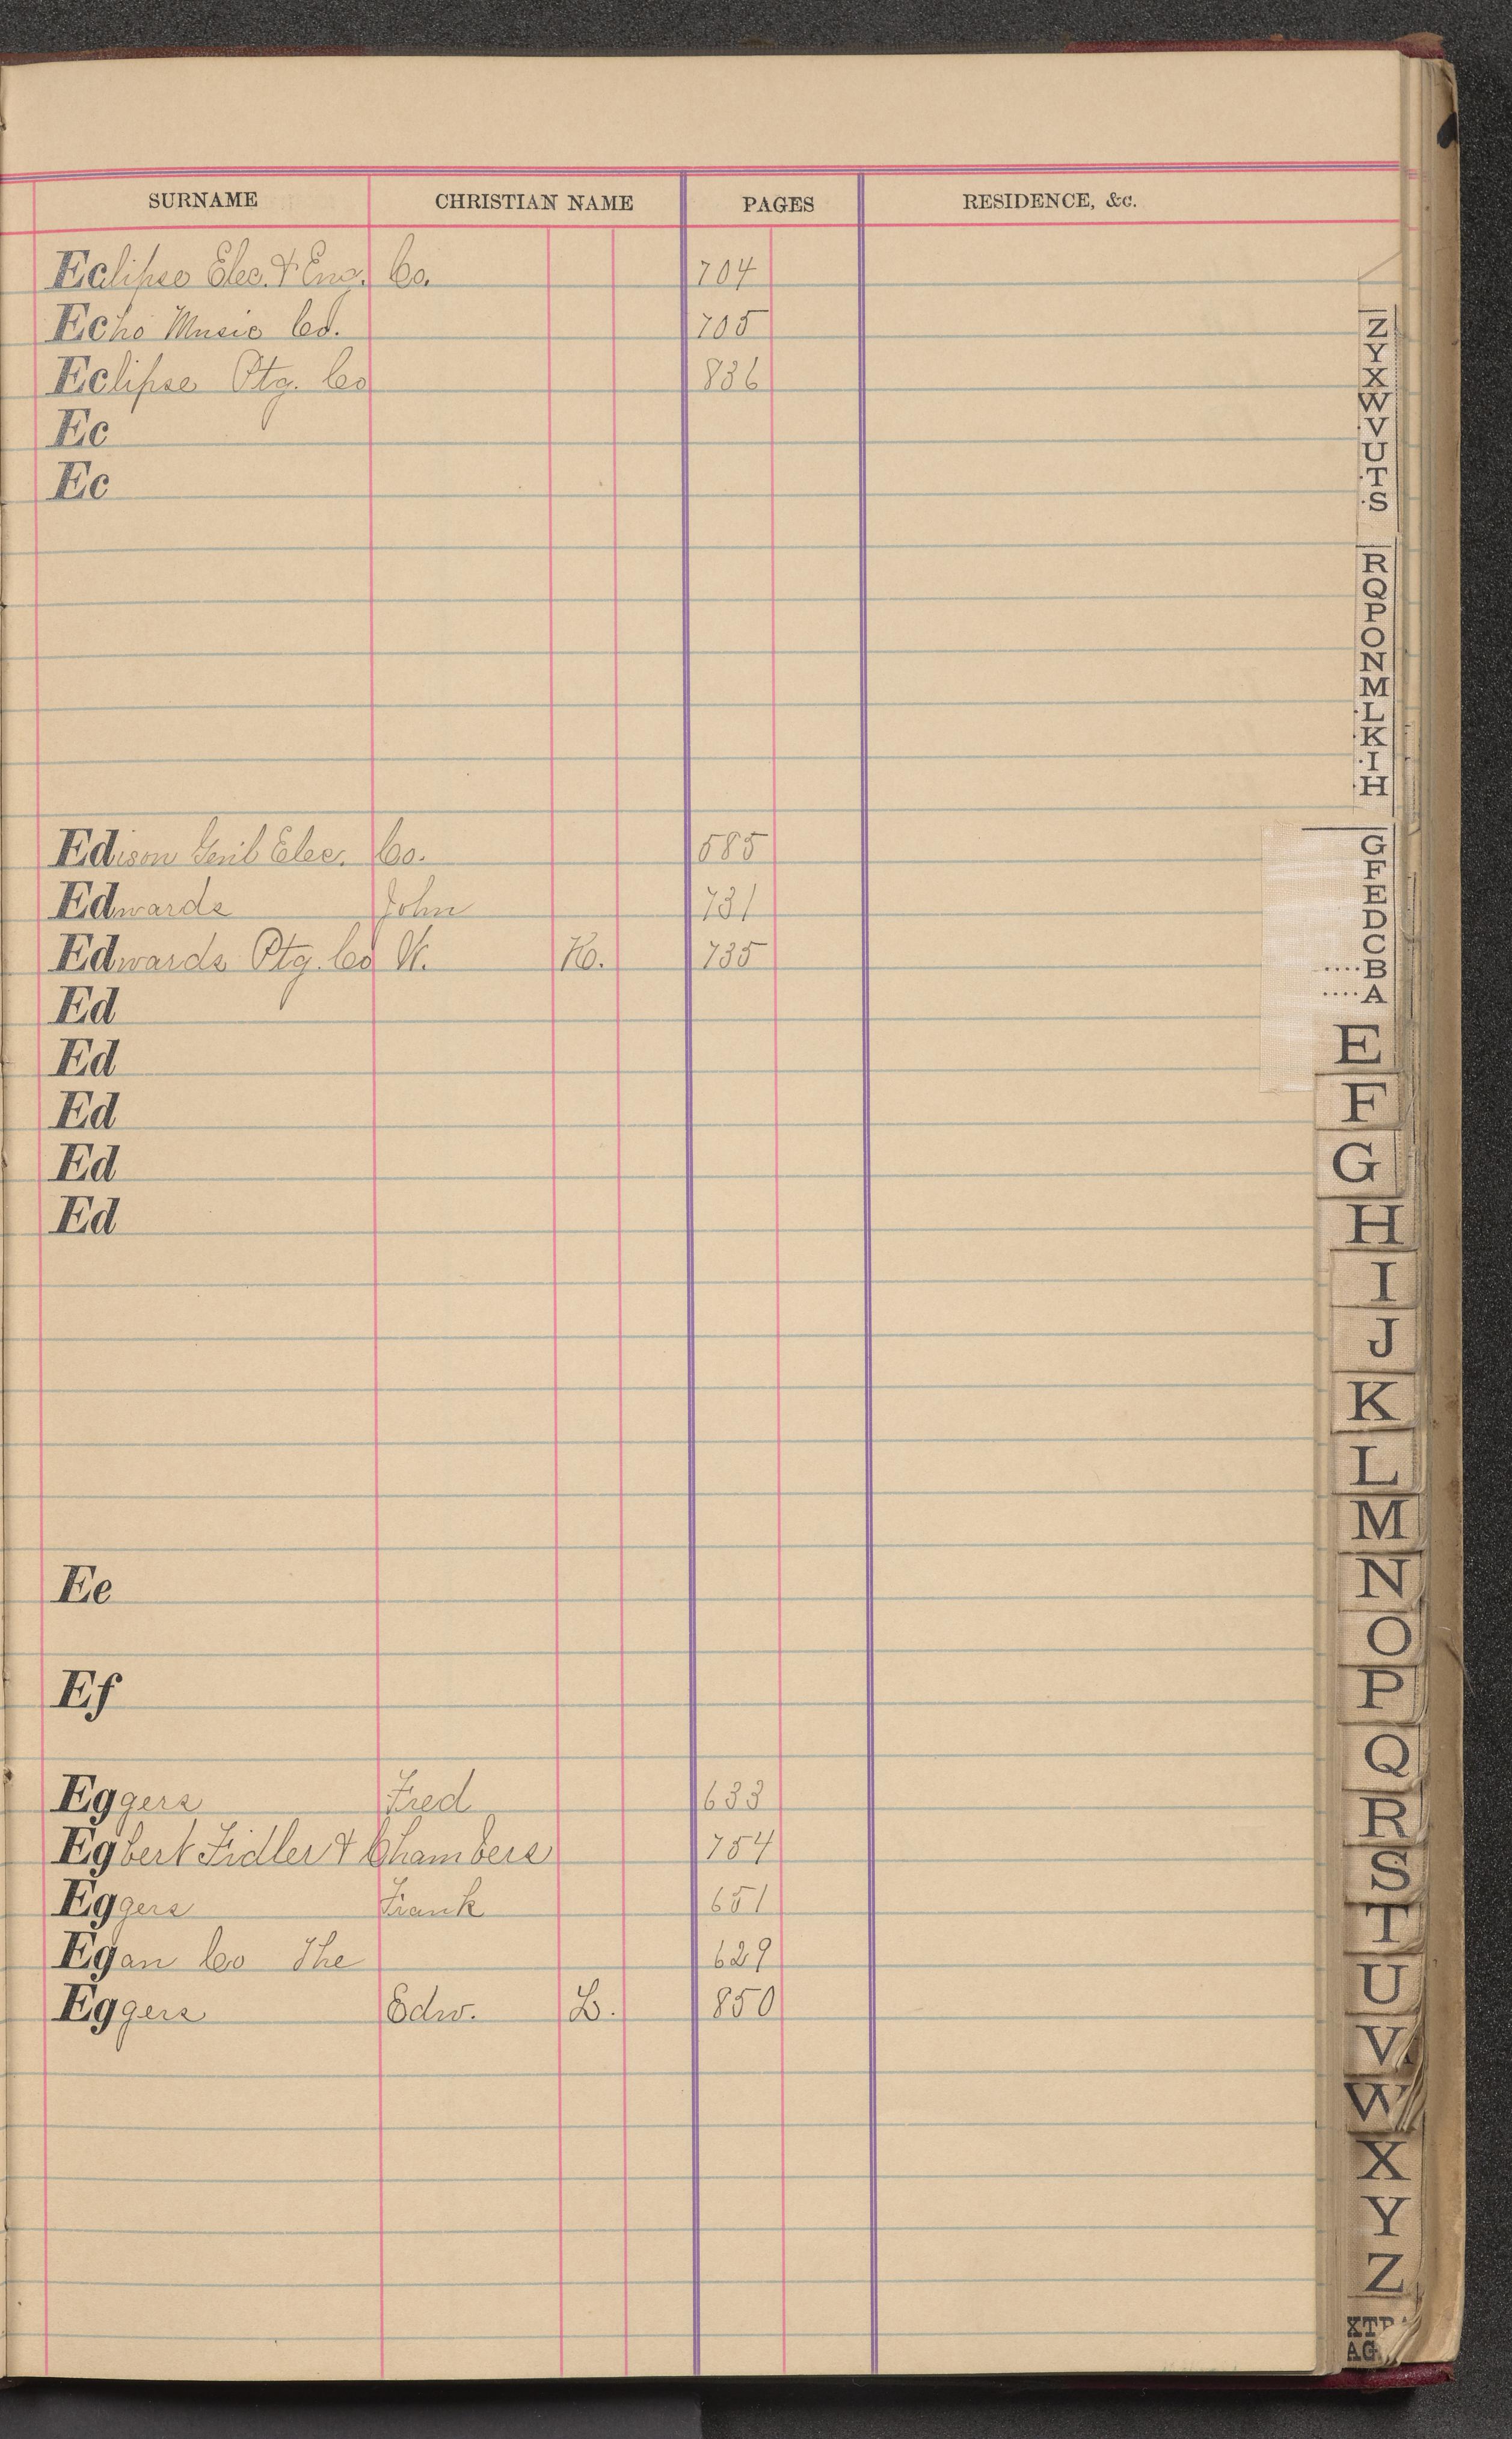 SURNAME CHRISTIAN NAME PAGES RESIDENCE, &c.
Eclipse Elec. & Eng. Co. 704
Echo Music Co. 705
Eclipse Ptg. Co 836
Ec
Ec
Edison Genl Elec. Co. 585
Edwards John 731
Edwards Ptg. Co W. H. 735
Ed
Ed
Ed
Ed
Ed
Ee
Ef
Eggers Fred 633
Egbert Fidler & Chambers 754
Eggers Frank 651
Egan Co The 629
Eggers Edw. L. 850
Z
Y
X
W
V
U
T
S
R
Q
P
O
N
M
L
K
I
H
G
F
E
D
C
B
A
E
F
G
H
I
J
K
L
M
N
O
P
Q
R
S
T
U
V
W
X
Y
Z